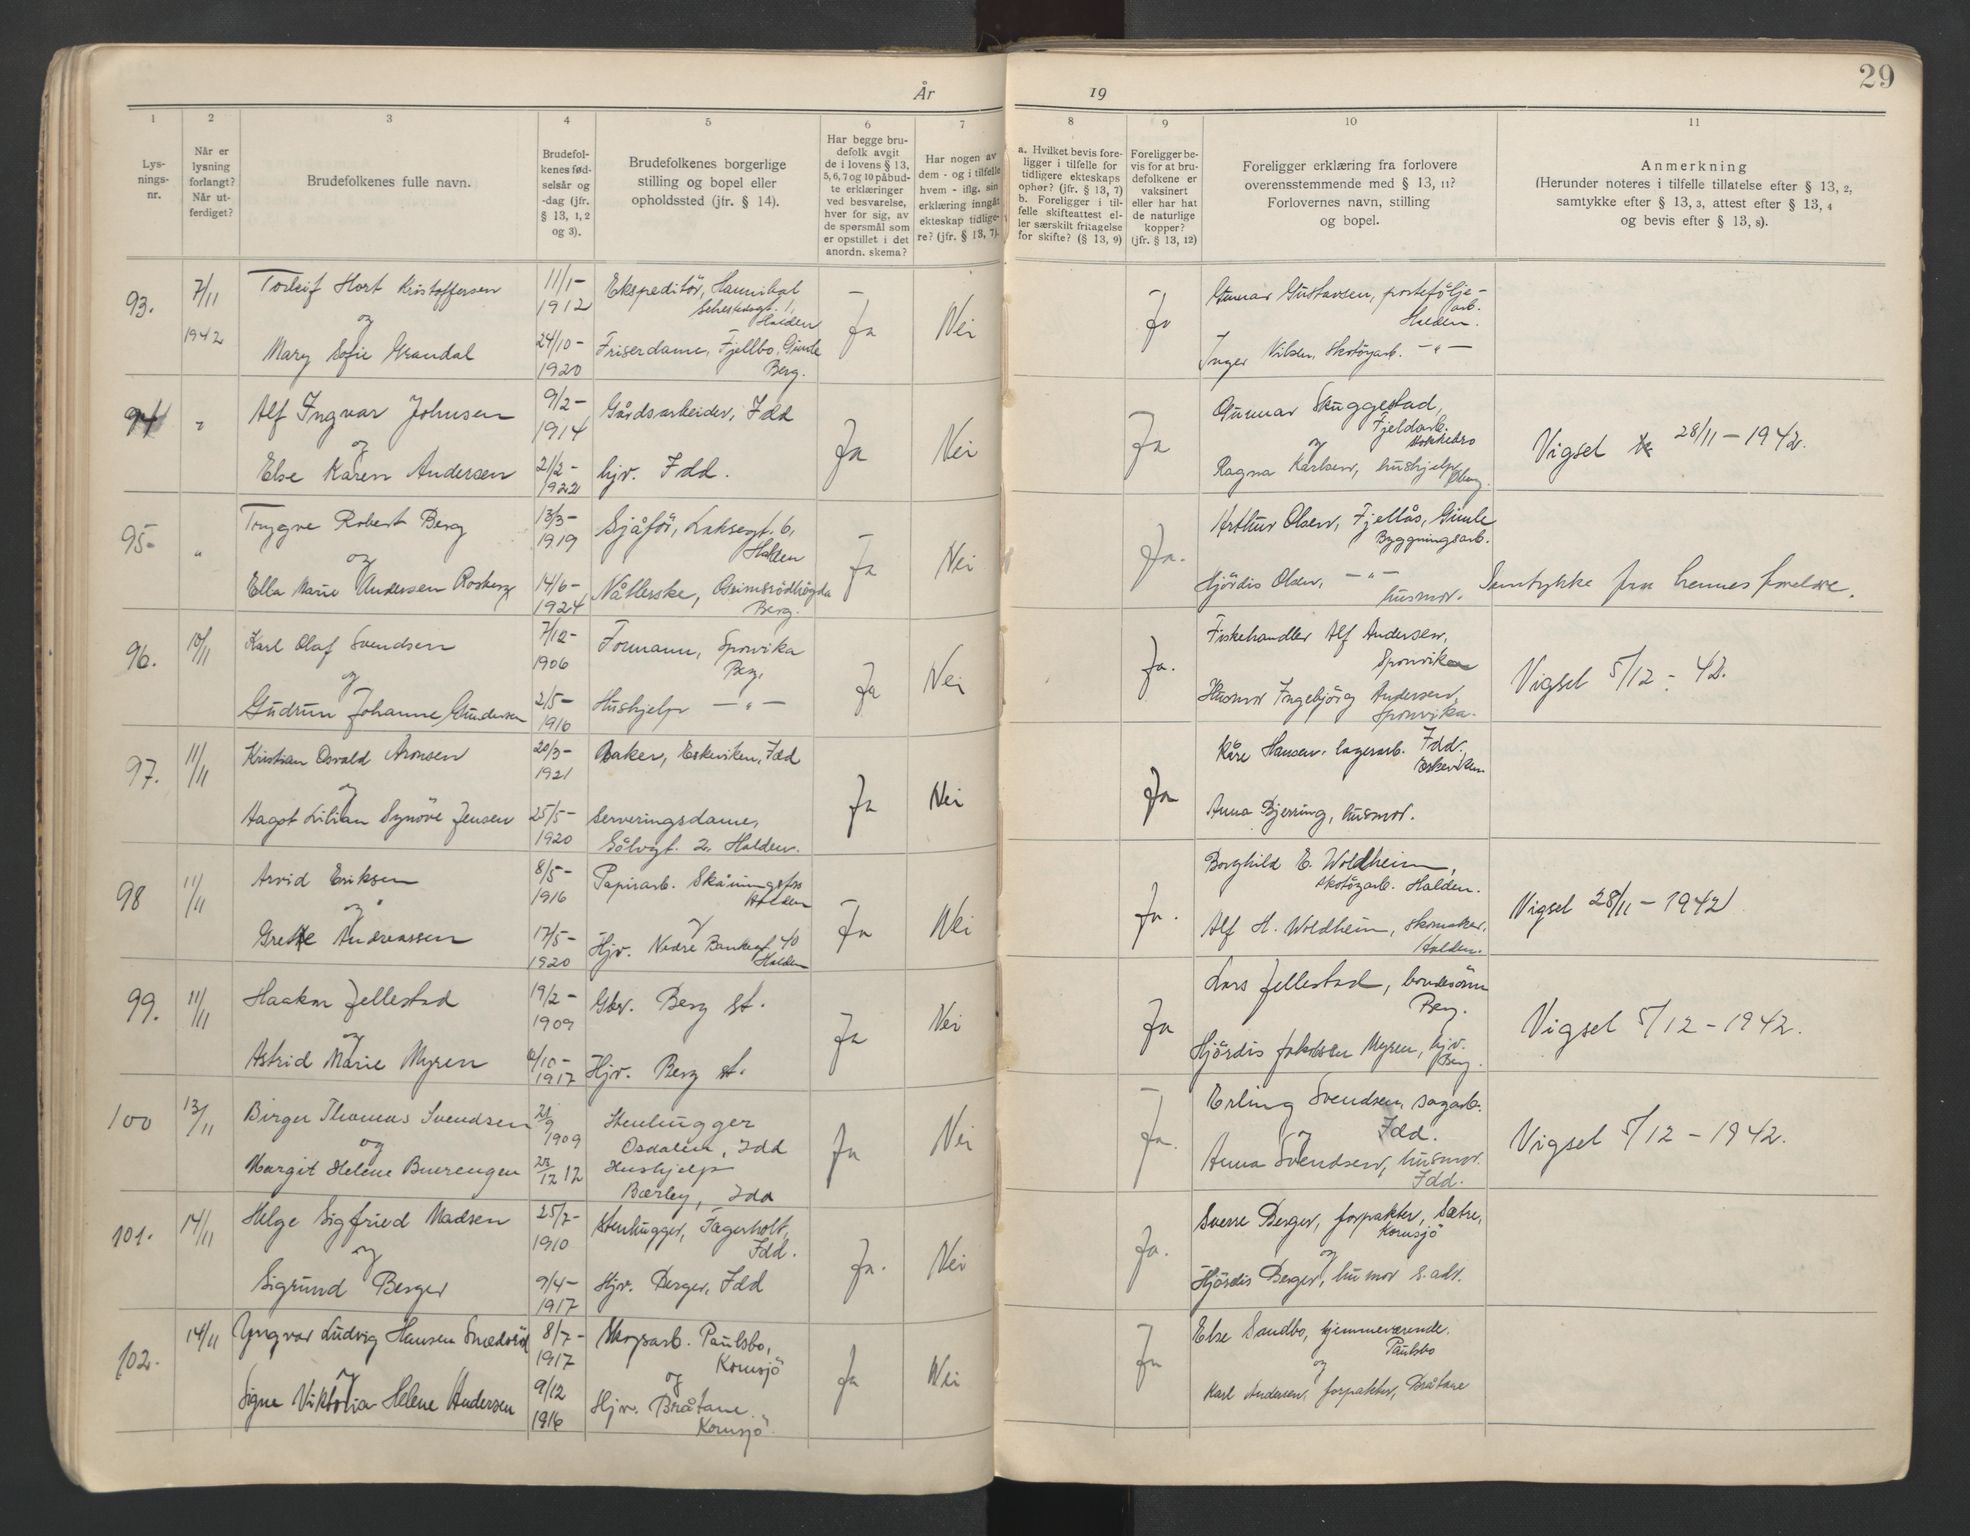 29
År
19
1
2
3
4
5
6
7
8
9
10
11
Lys-
nings-
nr.
Når er
lysning
forlangt?
Når ut-
ferdiget?
Brudefolkenes fulle navn.
Brudefol-
kenes fød-
selsår og
-dag (jfr.
§ 13, 1, 2
og 3).
Brudefolkenes borgerlige
stilling og bopel eller
opholdssted (jfr. § 14).
Har begge bru-
defolk avgit
de i lovens § 13,
5, 6, 7 og 10 påbud-
te erklæringer
ved besvarelse,
hver for sig, av
de spørsmål som
er opstillet i det
anordn. skema?
Har nogen av
dem - og i tilfelle
hvem - iflg. sin
erklæring inngått
ekteskap tidlige-
re? (jfr. § 13, 7).
a. Hvilket bevis fore-
ligger i tilfelle for
tidligere ekteskaps
ophør? (jfr. § 13, 7)
b. Foreligger i til-
felle skifteattest el-
ler særskilt fritagelse
for skifte? (§ 13, 9)
Foreligger be-
vis for at bru-
defolkene er
vaksinert
eller har hat
de naturlige
kopper?
(jfr. § 13, 12)
Foreligger erklæring fra forlovere
overensstemmende med § 13, 11?
Forlovernes navn, stilling
og bopel.
Anmerkning
(Herunder noteres i tilfelle tillatelse efter § 13, 2,
samtykke efter § 13, 3, attest efter § 13, 4
og bevis efter § 13, 8).
93.
7/11
1942
Torleif Hort Kristoffersen
og
Mary Sofie Grandal
11/1-
1912
24/10-
1920
Ekspeditör, Hannibal
Sehestedsgt. 1,
Halden
Friserdame, Fjellbo, Gimle
Berg.
Ja
Nei
Ja
Gunnar Gustavsen, portefölje-
arb.
Halden.
Inger Nilsen, Skotöyarb. -"-
94
"
Alf Ingvar Johnsen
og
Else Karen Andersen
9/2-
1914
21/2-
1922
Gårdsarbeider, Idd
hjv. Idd.
Ja
Nei
Ja
Gunnar Skuggestad,
Fjeldarb.
og
Ragna Karlsen, hushjelp
Berg.
Vigsel 28/11-1942.
95
"
Tryggve Robert Berg
og
Ella Marie Andersen Rosberg
13/3-
1919
14/6-
1924
Sjåför, Laksegt. 6,
Halden
Nåtlerske, Grimsrödhögda
Berg.
Ja
Nei
Ja.
Arthur Olsen, Fjellås, Gimle
Byggningsarb.
Hjördis Olsen, -"-
husmor.
Samtykke fra hennes foreldre.
96.
10/11
Karl Olaf Svendsen
og
Gudrun Johanne Gundersen
7/12-
1906
2/5-
1916
Formann, Sponvika
Berg.
Hushjelp -"-
Ja
Nei
Ja.
Fiskehandler Alf Andersen,
Sponvika
Husmor Ingebjörg Andersen,
Sponvika.
Vigsel 5/12-42.
97.
11/11
Kristian Osvald Aronsen
og
Aagot Lilian Synöve Jensen
20/3-
1921
25/5-
1920
Baker, Eskeviken, Idd
Serveringsdame,
Sölvgt. 2. Halden.
Ja
Nei
Ja
Kåre Hansen, lagerarb. Idd.,
Eskeviken
Anna Bjerring, husmor.
98
11/11
Arvid Eriksen
og
Grethe Andreassen
8/5-
1916
17/5-
1920
Papirarb. Skåningsfos
Halden
og
Hjv. Nedre Bankegt 40
Halden
Ja
Nei
Ja.
Borghild E. Woldheim,
skotöyarb. Halden.
Alf H. Woldheim, skomaker,
Halden.
Vigsel 28/11-1942
99.
11/11
Haakon Jellestad
og
Astrid Marie Myren
19/2-
1909
/10-
1917
Gbr. Berg st.
Hjv. Berg st.
Ja
Nei
Ja
Lars Jellestad, bondesönn
Berg.
Hjördis Jakobsen Myren, hjv.
Berg.
Vigsel 5/12-1942.
100
13/11
Birger Thomas Svendsen
og
Margit Helene Buerengen
21/9
1909
23/12 12
Stenhugger
Osdalen, Idd
Hushjelp
Bærby, Idd
Ja
Nei
Ja.
Erling Svendsen, sagarb.
Idd.
og
Anna Svendsen, husmor.
Idd.
Vigsel 5/12-1942.
101.
14/11
Helge Sigfried Madsen
og
Sigrund Berger
25/7-
1910
9/4-
1917
Stenhugger, Fagerholt,
Idd.
Hjv. Berger, Idd
Ja.
Nei
Ja.
Sverre Berger, forpakter, Sætre,
Kornsjö
og
Hjördis Berger, husmor s. adr.
102.
14/11
Yngvar Ludvig Hansen Smedsröd
og
Signe Viktoria Helene Andersen
8/7-
1917
9/12
1916
Skogsarb. Paulsbo,
Kornsjö
og
Hjv. Bråtane
Kornsjö
Ja
Nei
Ja
Else Sandbo, hjemmeværende.
Paulsbo
og
Karl Andersen, forpakter, Bråtane